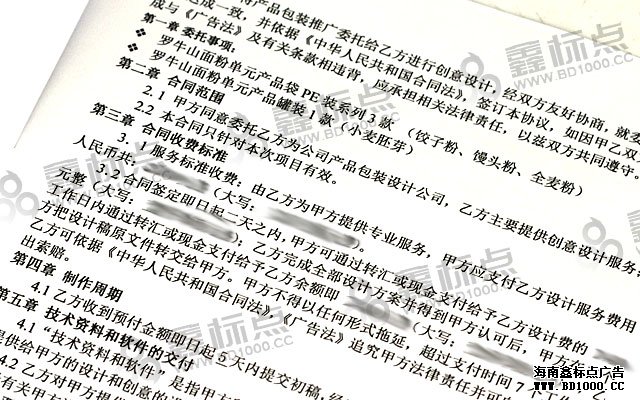 将产品包装推广委托给乙方进行创意设计，经双方友好协商，就
达成一致，并依据《中华人民共和国合同法》，签订本协议，如因甲乙双
成与《广告法》及有关条款相违背，应承担相关法律责任，以兹双方共同遵守。
第一章 委托事项：
罗牛山面粉单元产品袋 PE 装系列 3 款（饺子粉、馒头粉、全麦粉）
罗牛山面粉单元产品罐装 1 款（小麦胚芽）
第二章 合同范围
2.1 甲方同意委托乙方为公司产品包装设计公司，乙方主要提供创意设计服务
2.2 本合同只针对本次项目有效。
第三章 合同收费标准
服务标准收费：由乙方为甲方提供专业服务，甲方应支付乙方设计服务费用
人民币共：
元整（大写：
）。
3.2 合同签定即日起二天之内，甲方可通过转汇或现金支付给予乙方设计费的
（大写：
）；乙方完成全部设计方案并得到甲方认可后，甲方在
工作日内通过转汇或现金支付给予乙方余额即
（大写：
方把设计稿原文件转交给甲方。甲方不得以任何形式拖延，超过支付时间 7 个工作
乙方可依据《中华人民共和国合同法》《广告法》追究甲方法律责任并可
出索赔。
第四章 制作周期
4.1 乙方收到预付金额即日起 5 天内提交初稿，经
第五章 技术资料和软件的交付
4.1 “技术资料和软件”是指甲方
提供给甲方的设计和创意的
4.2 乙方对甲方提供
有关甲方
鑫标点
WWW.BD1000.CC
海南鑫标点广告
WWW.BD1000.CC